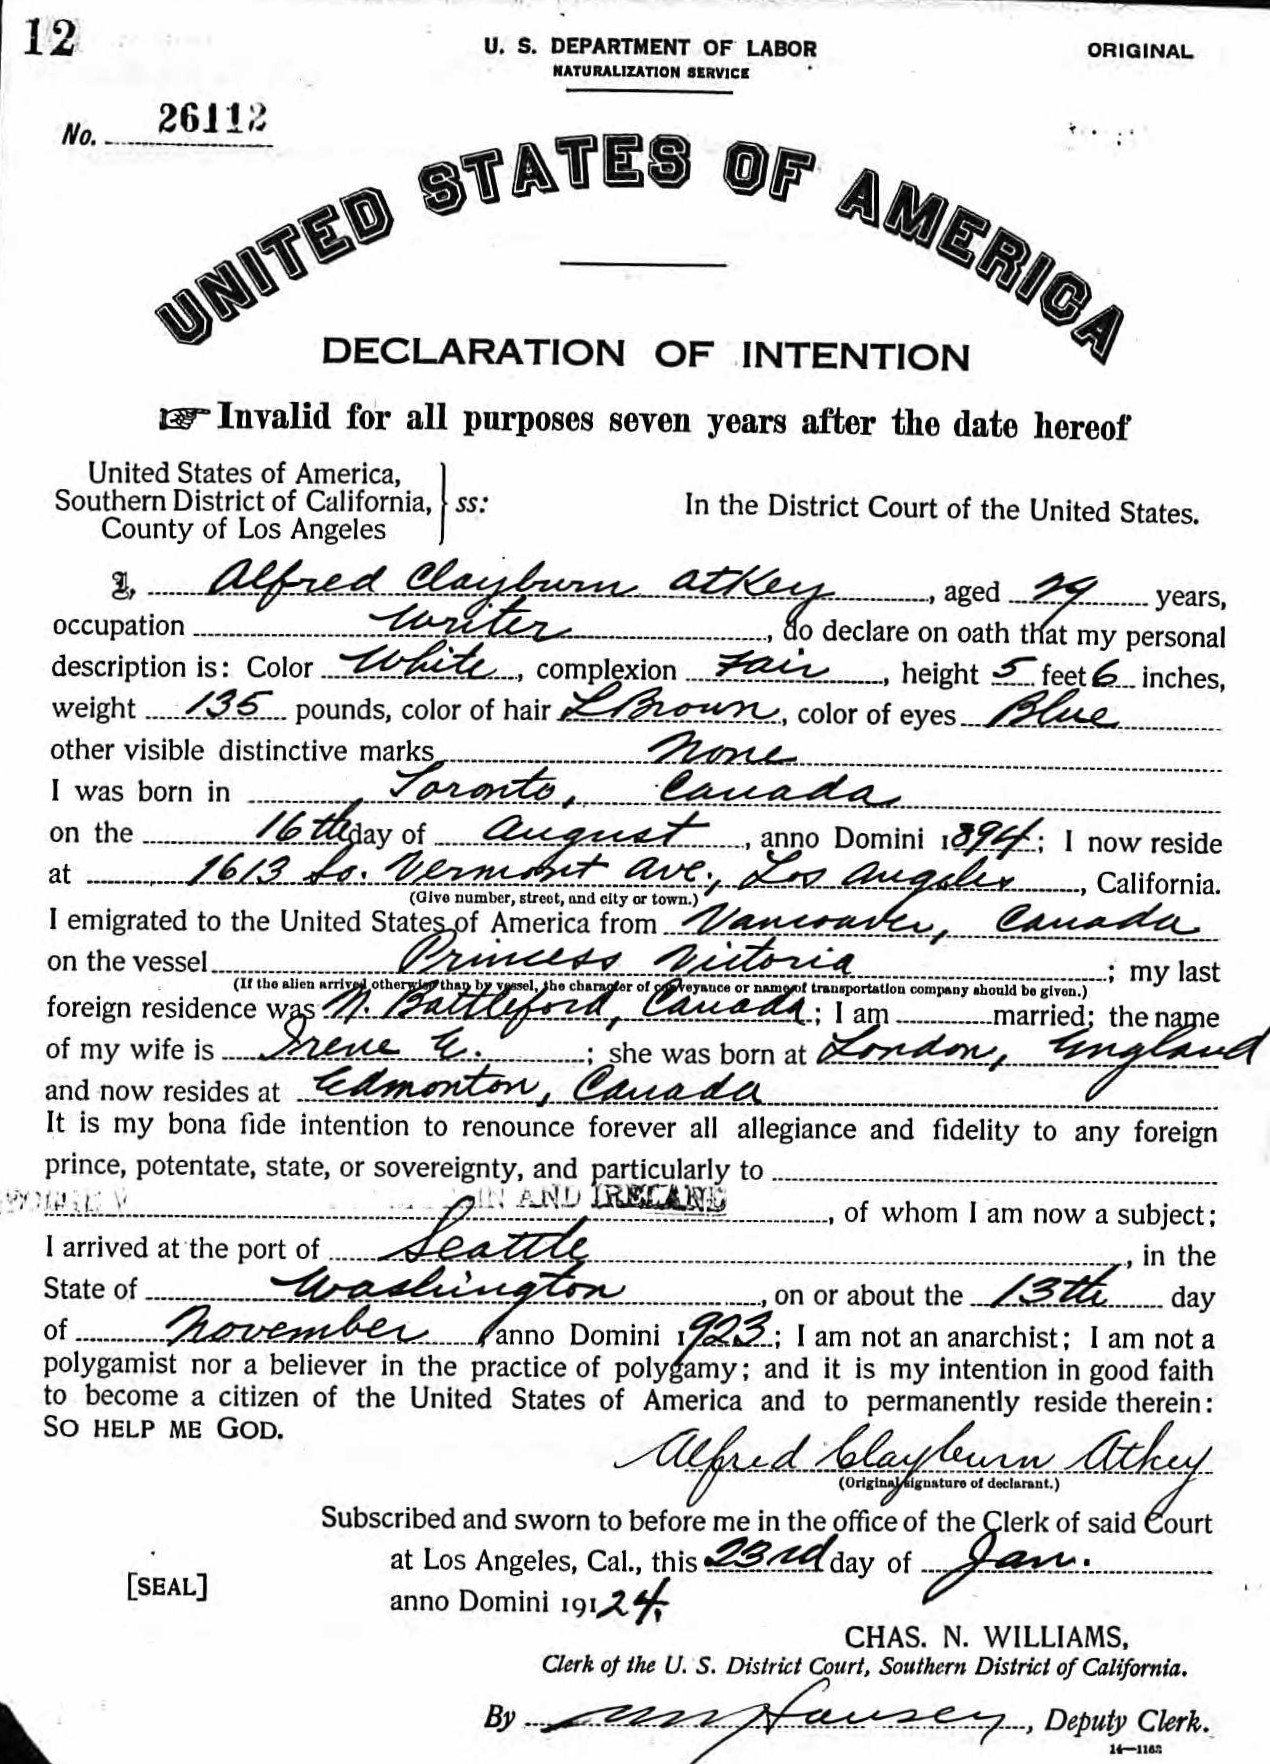 12
U. S. DEPARTMENT OF LABOR
NATURALIZATION SERVICE
ORIGINAL
No. 26112
UNITED STATES OF AMERICA
DECLARATION OF INTENTION
☞ Invalid for all purposes seven years after the date hereof
United States of America,
Southern District of California, } ss:
County of Los Angeles
In the District Court of the United States.
I, Alfred Clayburn Atkey, aged 29 years,
occupation Writer, do declare on oath that my personal
description is: Color White, complexion Fair, height 5 feet 6 inches,
weight 135 pounds, color of hair L Brown, color of eyes Blue
other visible distinctive marks None
I was born in Toronto, Canada
on the 16th day of August, anno Domini 1894; I now reside
at 1613 So. Vermont Ave., Los Angeles, California.
(Give number, street, and city or town.)
I emigrated to the United States of America from Vancouver, Canada
on the vessel Princess Victoria; my last
(If the alien arrived otherwise than by vessel, the character of conveyance or name of transportation company should be given.)
foreign residence was N. Battleford, Canada; I am married; the name
of my wife is Irene E.; she was born at London, England
and now resides at Edmonton, Canada
It is my bona fide intention to renounce forever all allegiance and fidelity to any foreign
prince, potentate, state, or sovereignty, and particularly to
AND IRELAND, of whom I am now a subject;
I arrived at the port of Seattle, in the
State of Washington, on or about the 13th day
of November anno Domini 1923; I am not an anarchist; I am not a
polygamist nor a believer in the practice of polygamy; and it is my intention in good faith
to become a citizen of the United States of America and to permanently reside therein:
SO HELP ME GOD.
Alfred Clayburn Atkey
(Original signature of declarant.)
Subscribed and sworn to before me in the office of the Clerk of said Court
at Los Angeles, Cal., this 23rd day of Jan.
anno Domini 19124.
[SEAL]
CHAS. N. WILLIAMS,
Clerk of the U. S. District Court, Southern District of California.
By , Deputy Clerk.
14—1163